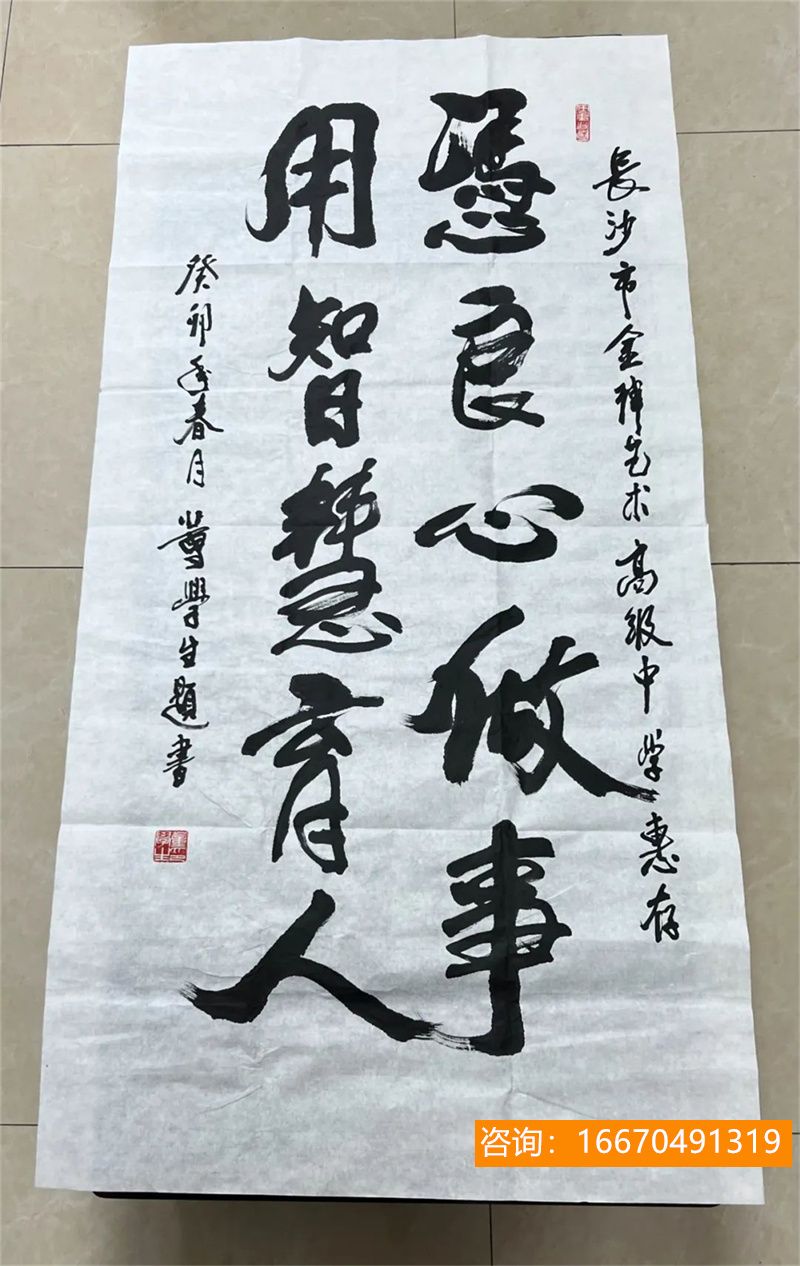 長沙市金禅艺术高级中学惠存
憑良心做事
用智慧育人
癸卯年春月
學生題書
咨询：16670491319